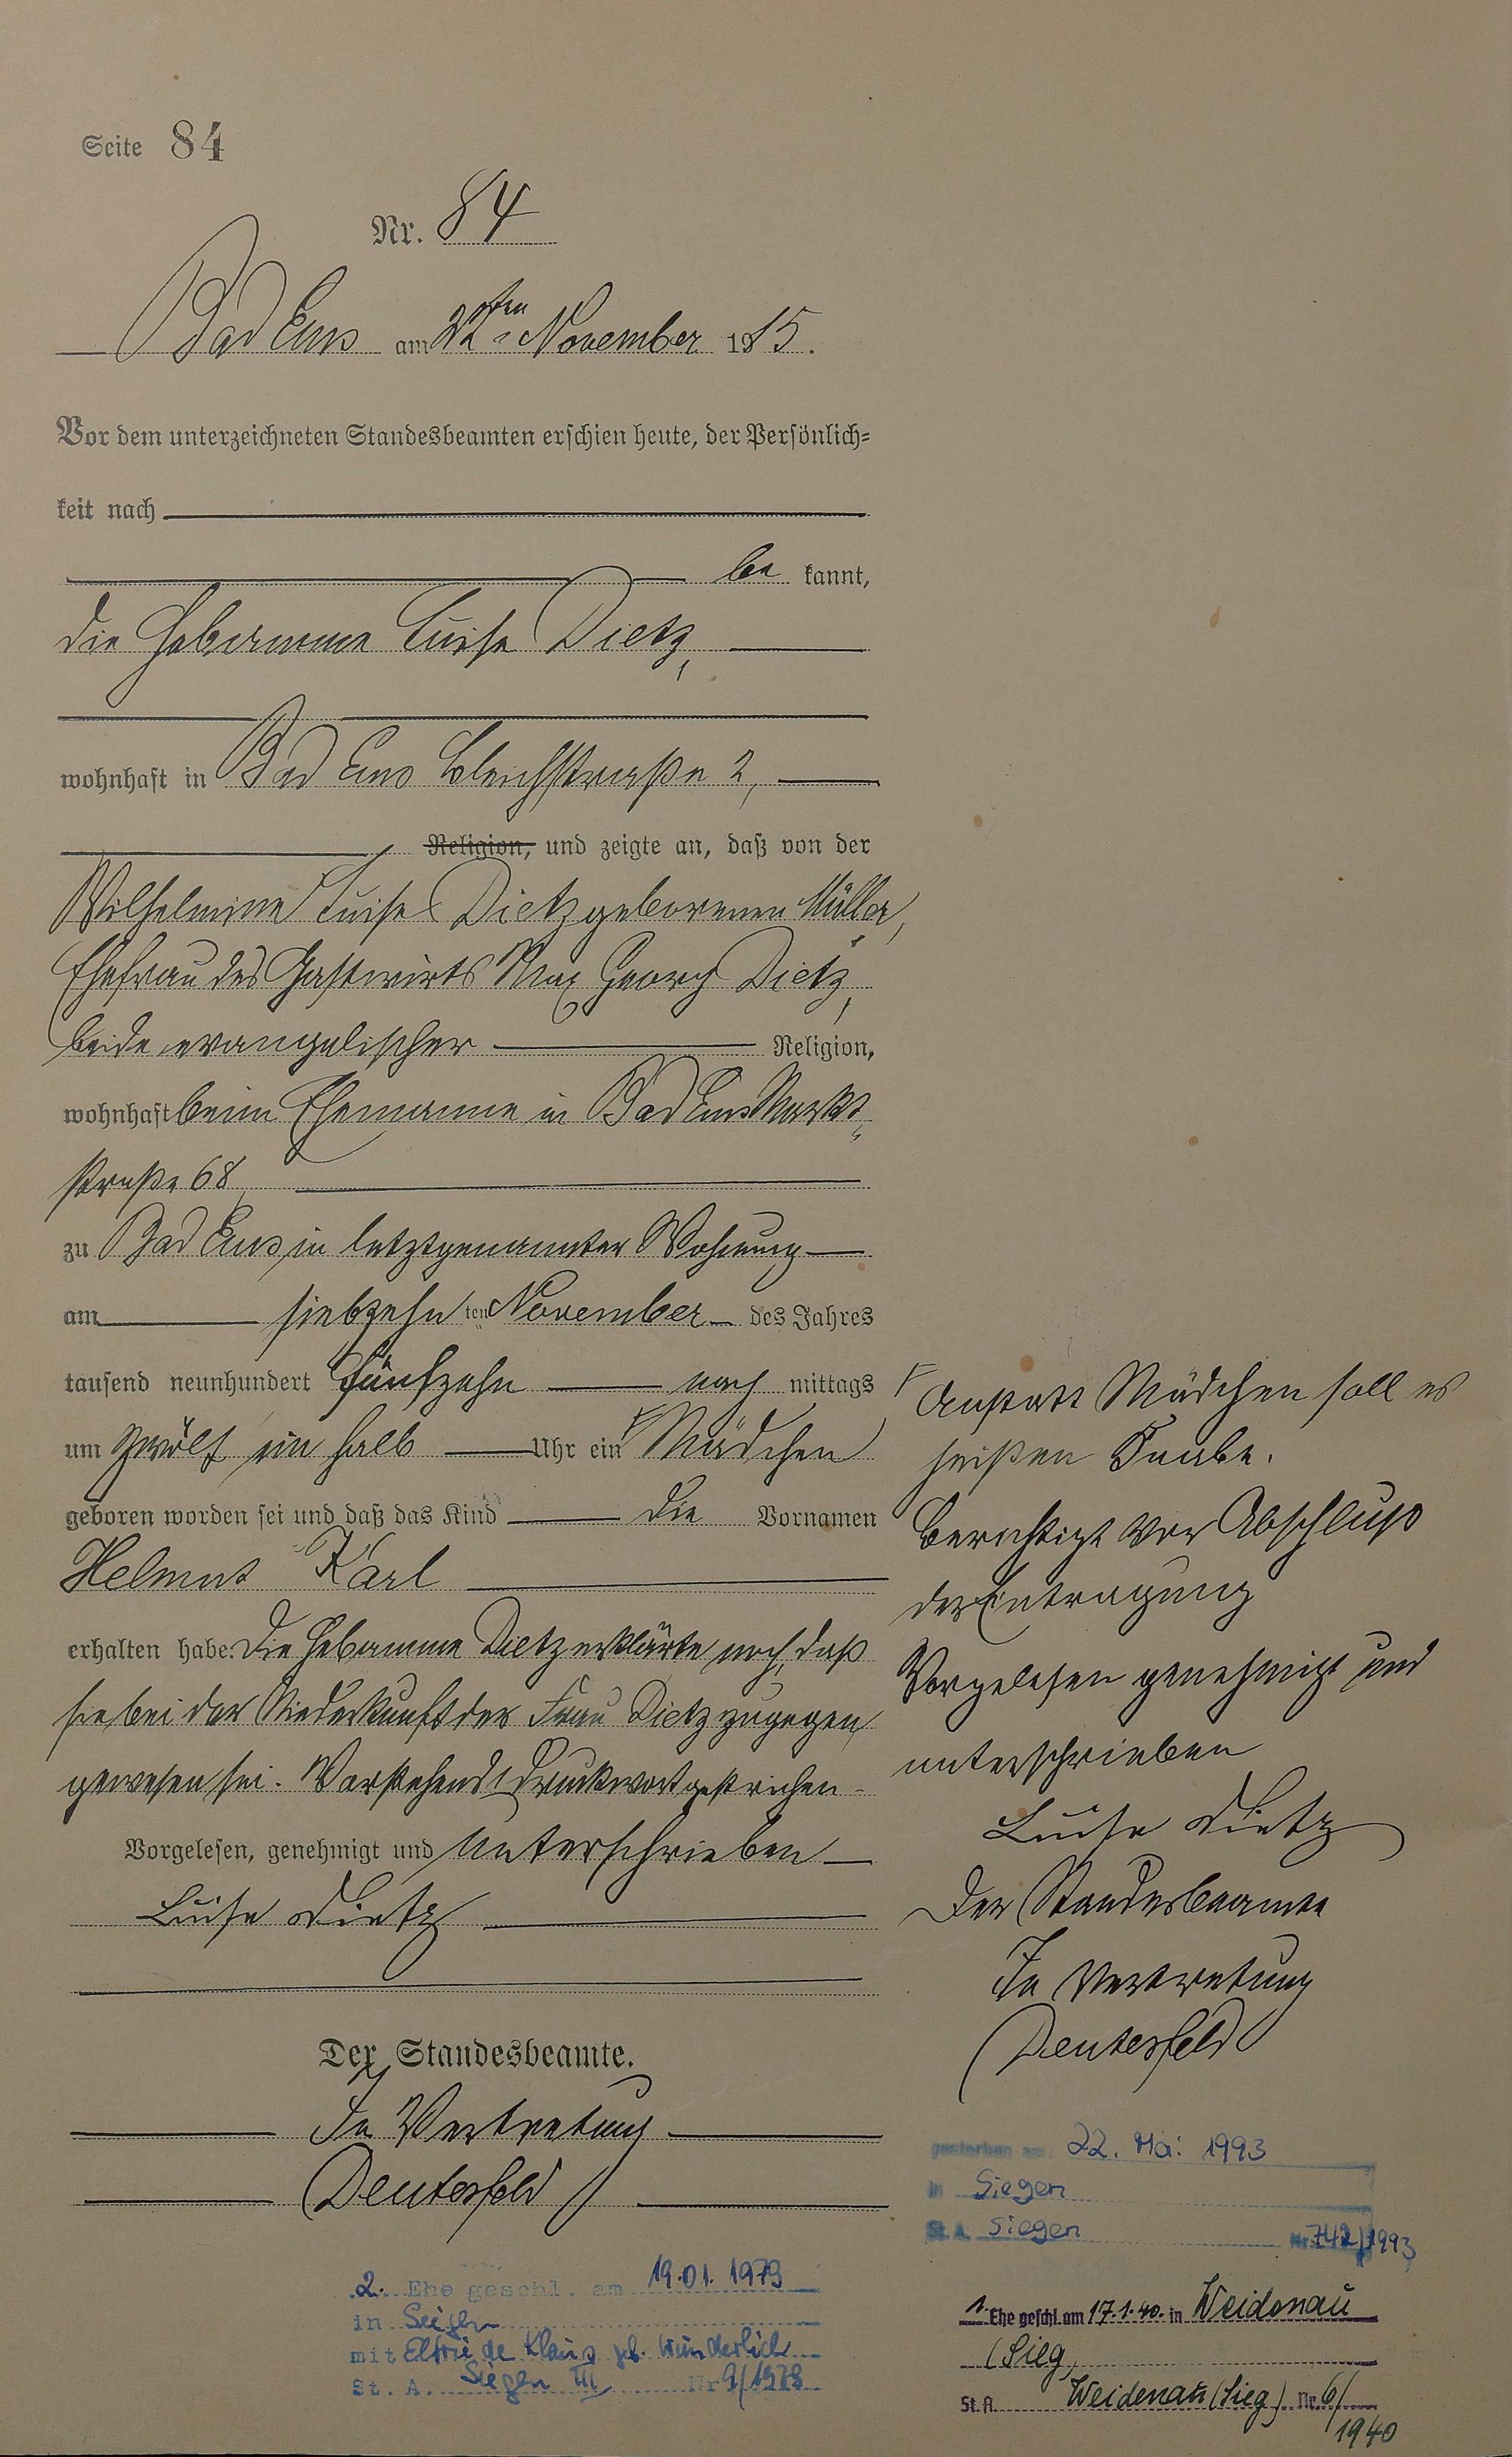 Seite 84
Nr. 84
Bad Ems am 22ten November 1915.
Vor dem unterzeichneten Standesbeamten erschien heute, der Persönlich=
keit nach
be kannt,
die Hebamme Luise Dietz,
wohnhaft in Bad Ems Bleichstraße 2,
Religion, und zeigte an, daß von der
Wilhelmine Luise Dietz geborenen Müller,
Ehefrau des Gastwirts Max Georg Dietz,
beide evangelischer Religion,
wohnhaft beim Ehemanne in Bad Ems Markt=
straße 68,
zu Bad Ems in letztgenannter Wohnung
am siebzehn ten November des Jahres
tausend neunhundert fünfzehn nach mittags
um zwölf ein halb Uhr ein Mädchen
geboren worden sei und daß das Kind die Vornamen
Helmut Karl
erhalten habe. Die Hebamme Dietz erklärte noch, daß
sie bei der Niederkunft der Frau Dietz zugegen
gewesen sei. Vorstehend 1 Druckwort gestrichen.
Vorgelesen, genehmigt und unterschrieben
Luise Dietz
Der Standesbeamte.
In Vertretung
Deutesfeld
2. Ehe geschl. am 19.01.1979
in Siegen
mit Elfriede Klaus geb. Wunderlich
St. A. Siegen III Nr 9/1979
Anstatt Mädchen soll es
heißen Knabe.
Berichtigt vor Abschluß
der Eintragung
Vorgelesen genehmigt und
unterschrieben
Luise Dietz
Der Standesbeamte
In Vertretung
Deutesfeld
gestorben am 22. Mai 1993
in Siegen
St. A. Siegen Nr. 742/1993
1. Ehe geschl. am 17.1.40. in Weidenau
(Sieg)
St. A. Weidenau (Sieg) Nr. 6/
1940